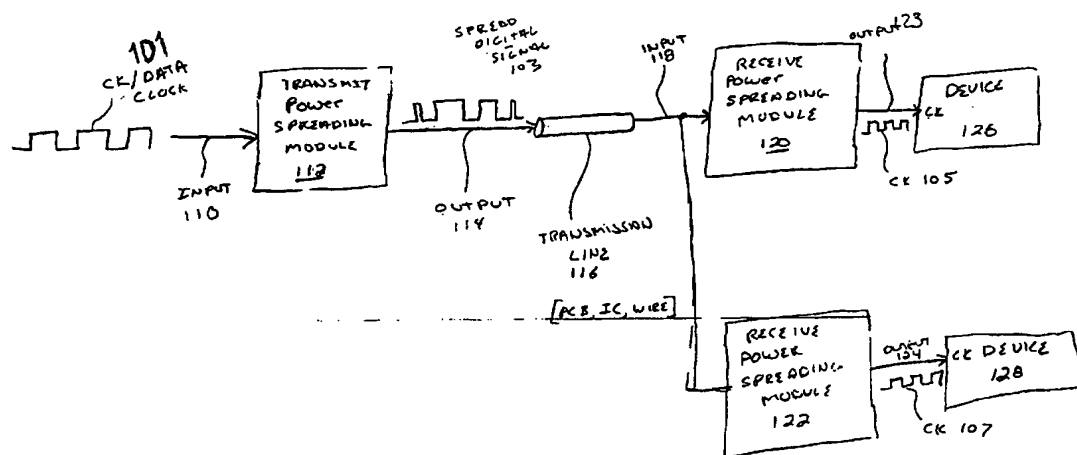 101
CK/DATA
CLOCK
INPUT
110
TRANSMIT
POWER
SPREADING
MODULE
112
SPREAD
DIGITAL
SIGNAL
103
OUTPUT
114
TRANSMISSION
LINE
116
[PCB, IC, WIRE]
INPUT
118
RECEIVE
POWER
SPREADING
MODULE
120
OUTPUT 23
CK
DEVICE
126
CK 105
RECEIVE
POWER
SPREADING
MODULE
122
OUTPUT
124
CK DEVICE
128
CK 107